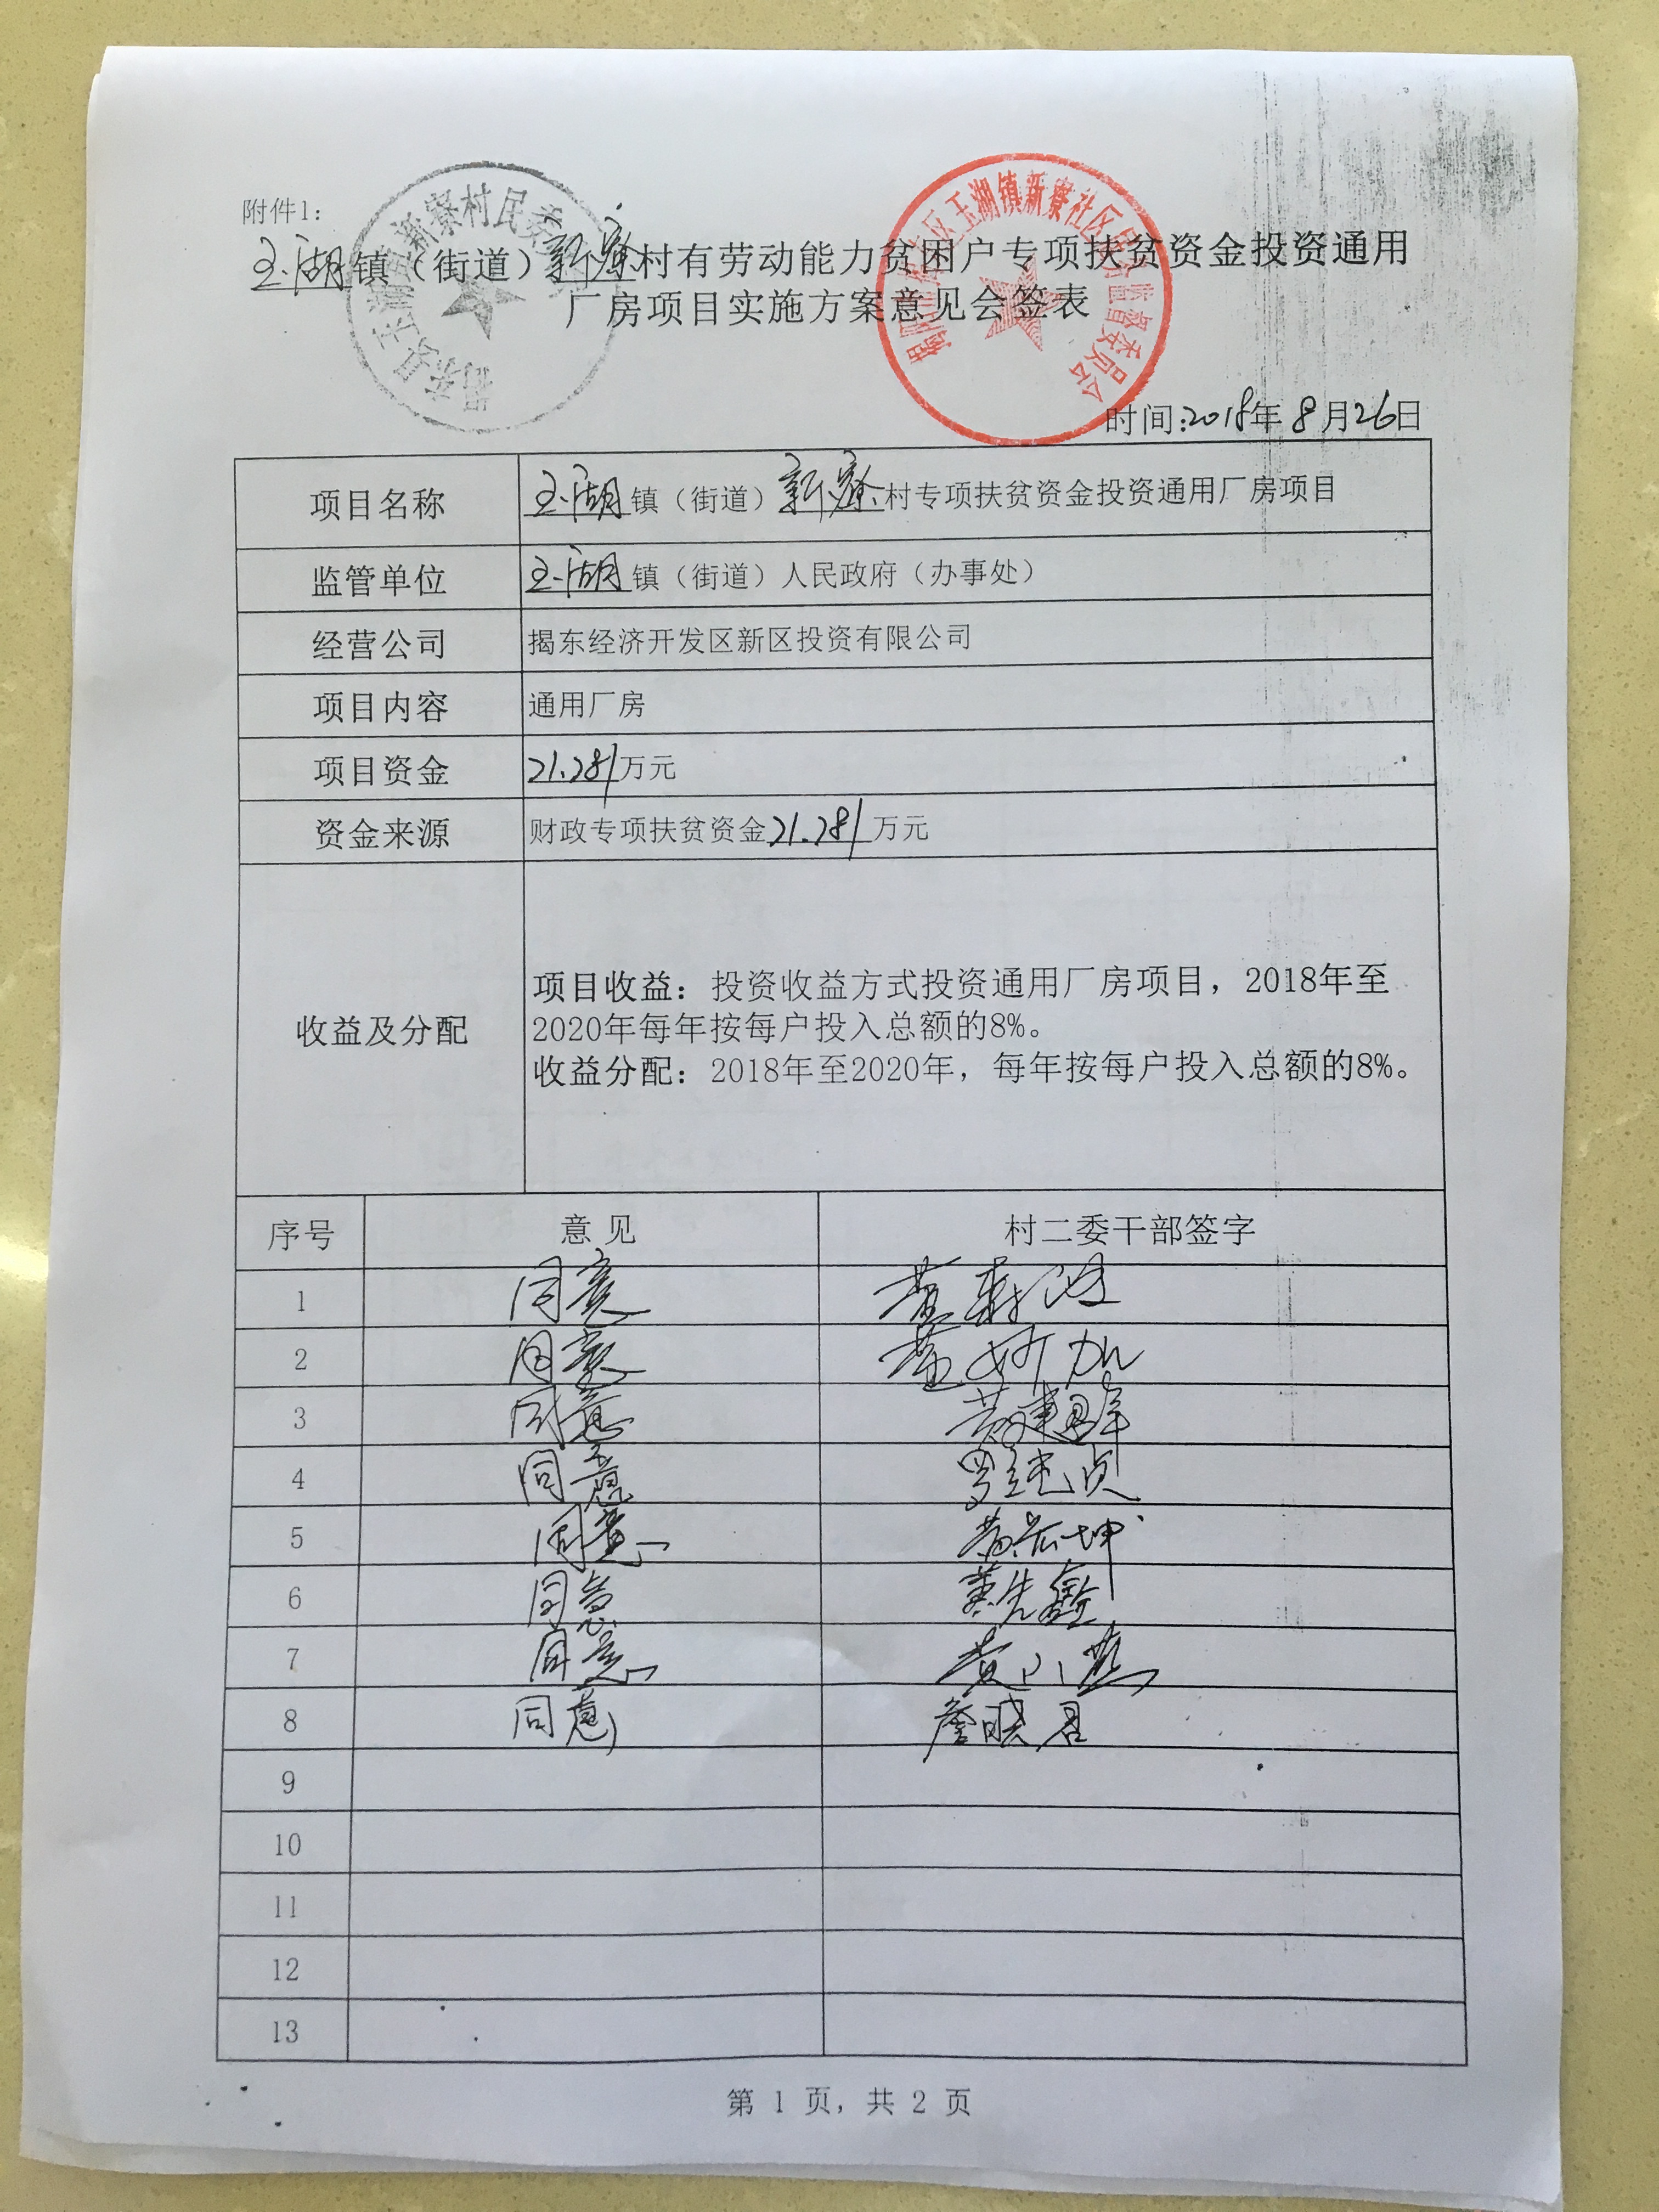 附件1:
玉湖镇（街道）新寮村有劳动能力贫困户专项扶贫资金投资通用
厂房项目实施方案意见会签表
时间:2018年8月26日
项目名称 玉湖镇（街道）新寮村专项扶贫资金投资通用厂房项目
监管单位 玉湖镇（街道）人民政府（办事处）
经营公司 揭东经济开发区新区投资有限公司
项目内容 通用厂房
项目资金 21.281万元
资金来源 财政专项扶贫资金21.281万元
收益及分配
项目收益：投资收益方式投资通用厂房项目，2018年至
2020年每年按每户投入总额的8%。
收益分配：2018年至2020年，每年按每户投入总额的8%。
序号 意见 村二委干部签字
1 同意
2 同意
3 同意 黄建群
4 同意
5 同意
6 同意 黄先鑫
7 同意
8 同意 詹晓君
9
10
11
12
13
第 1 页，共 2 页